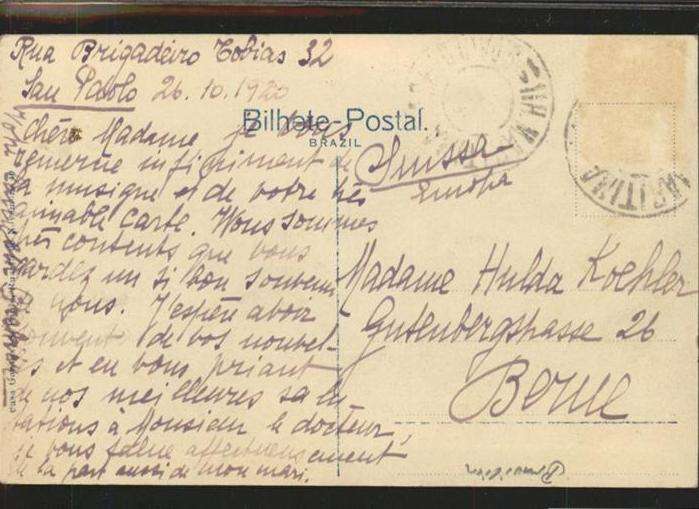 Rua Brigadeiro Tobias 32
San Paolo 26.10.1920
Bilhete-Postal.
BRAZIL
Chère Madame je vous
remercie infiniment de
la musique et de votre très
aimable carte. Nous sommes
très contents que vous
gardez un si bon souvenir
de nous. J'espère avoir
souvent de vos nouvel-
les et en vous priant
de nos meilleures salu
tations à Monsieur le docteur,
je vous salue affectueusement
de la part aussi de mon mari.
Suissa
Europa
Madame Hulda Koehler
Gutenbergstrasse 26
Berne
MARITIMA